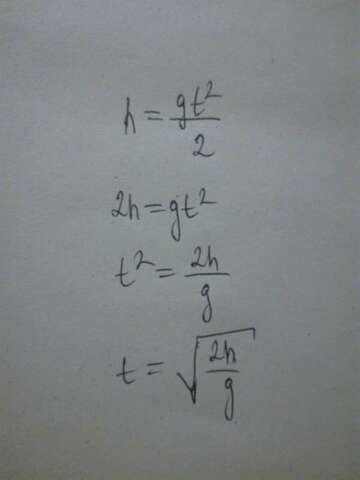 h = gt²/2
2h = gt²
t² = 2h/g
t = √(2h/g)